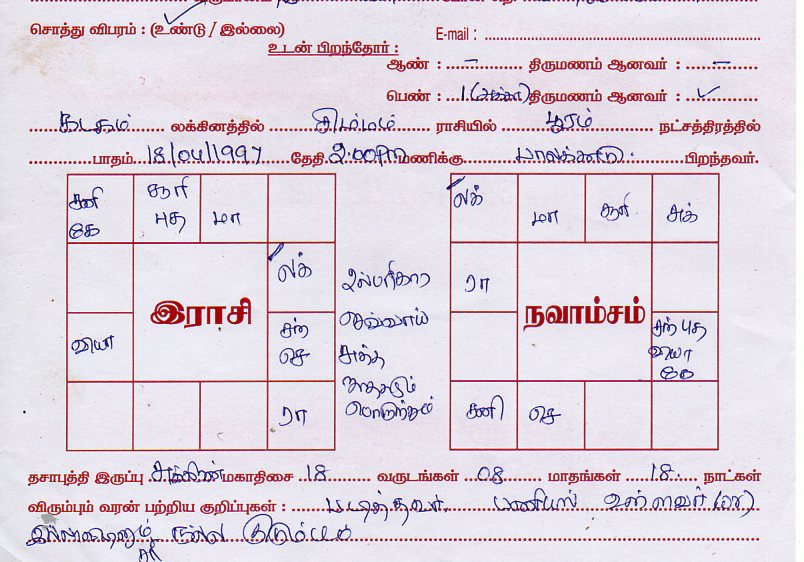 சொத்து விபரம் : (உண்டு / இல்லை)
E-mail :
உடன் பிறந்தோர் :
ஆண் : – திருமணம் ஆனவர் : –
பெண் : 1 (அக்கா) திருமணம் ஆனவர் : ✓
கடகம் லக்கினத்தில் சிம்மம் ராசியில் பூரம் நட்சத்திரத்தில்
பாதம் 18/04/1997 தேதி 2.00PM மணிக்கு பாலக்காடு பிறந்தவர்.
சனி கே
சூரி புத
மா
லக்
வியா
சந் செ
ரா
இராசி
பரிகார
செவ்வாய்
சுத்த
ஜாதகமும்
பொருந்தும்
லக்
மா
சூரி
சுக்
ரா
சந் புத
வியா
கே
சனி
செ
நவாம்சம்
தசாபுத்தி இருப்பு சுக்கிரன் மகாதிசை 18 வருடங்கள் 08 மாதங்கள் 18 நாட்கள்
விரும்பும் வரன் பற்றிய குறிப்புகள் : படித்தவர் பணியில் உள்ளவர் (or)
நல்ல குடும்பம்